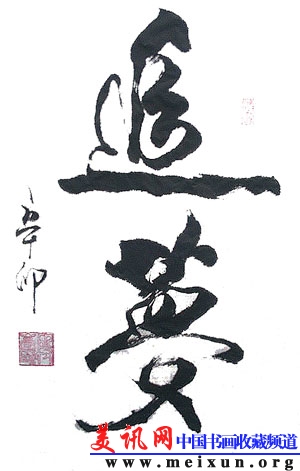 追夢
辛卯
美讯网 中国书画收藏频道
www.meixun.org